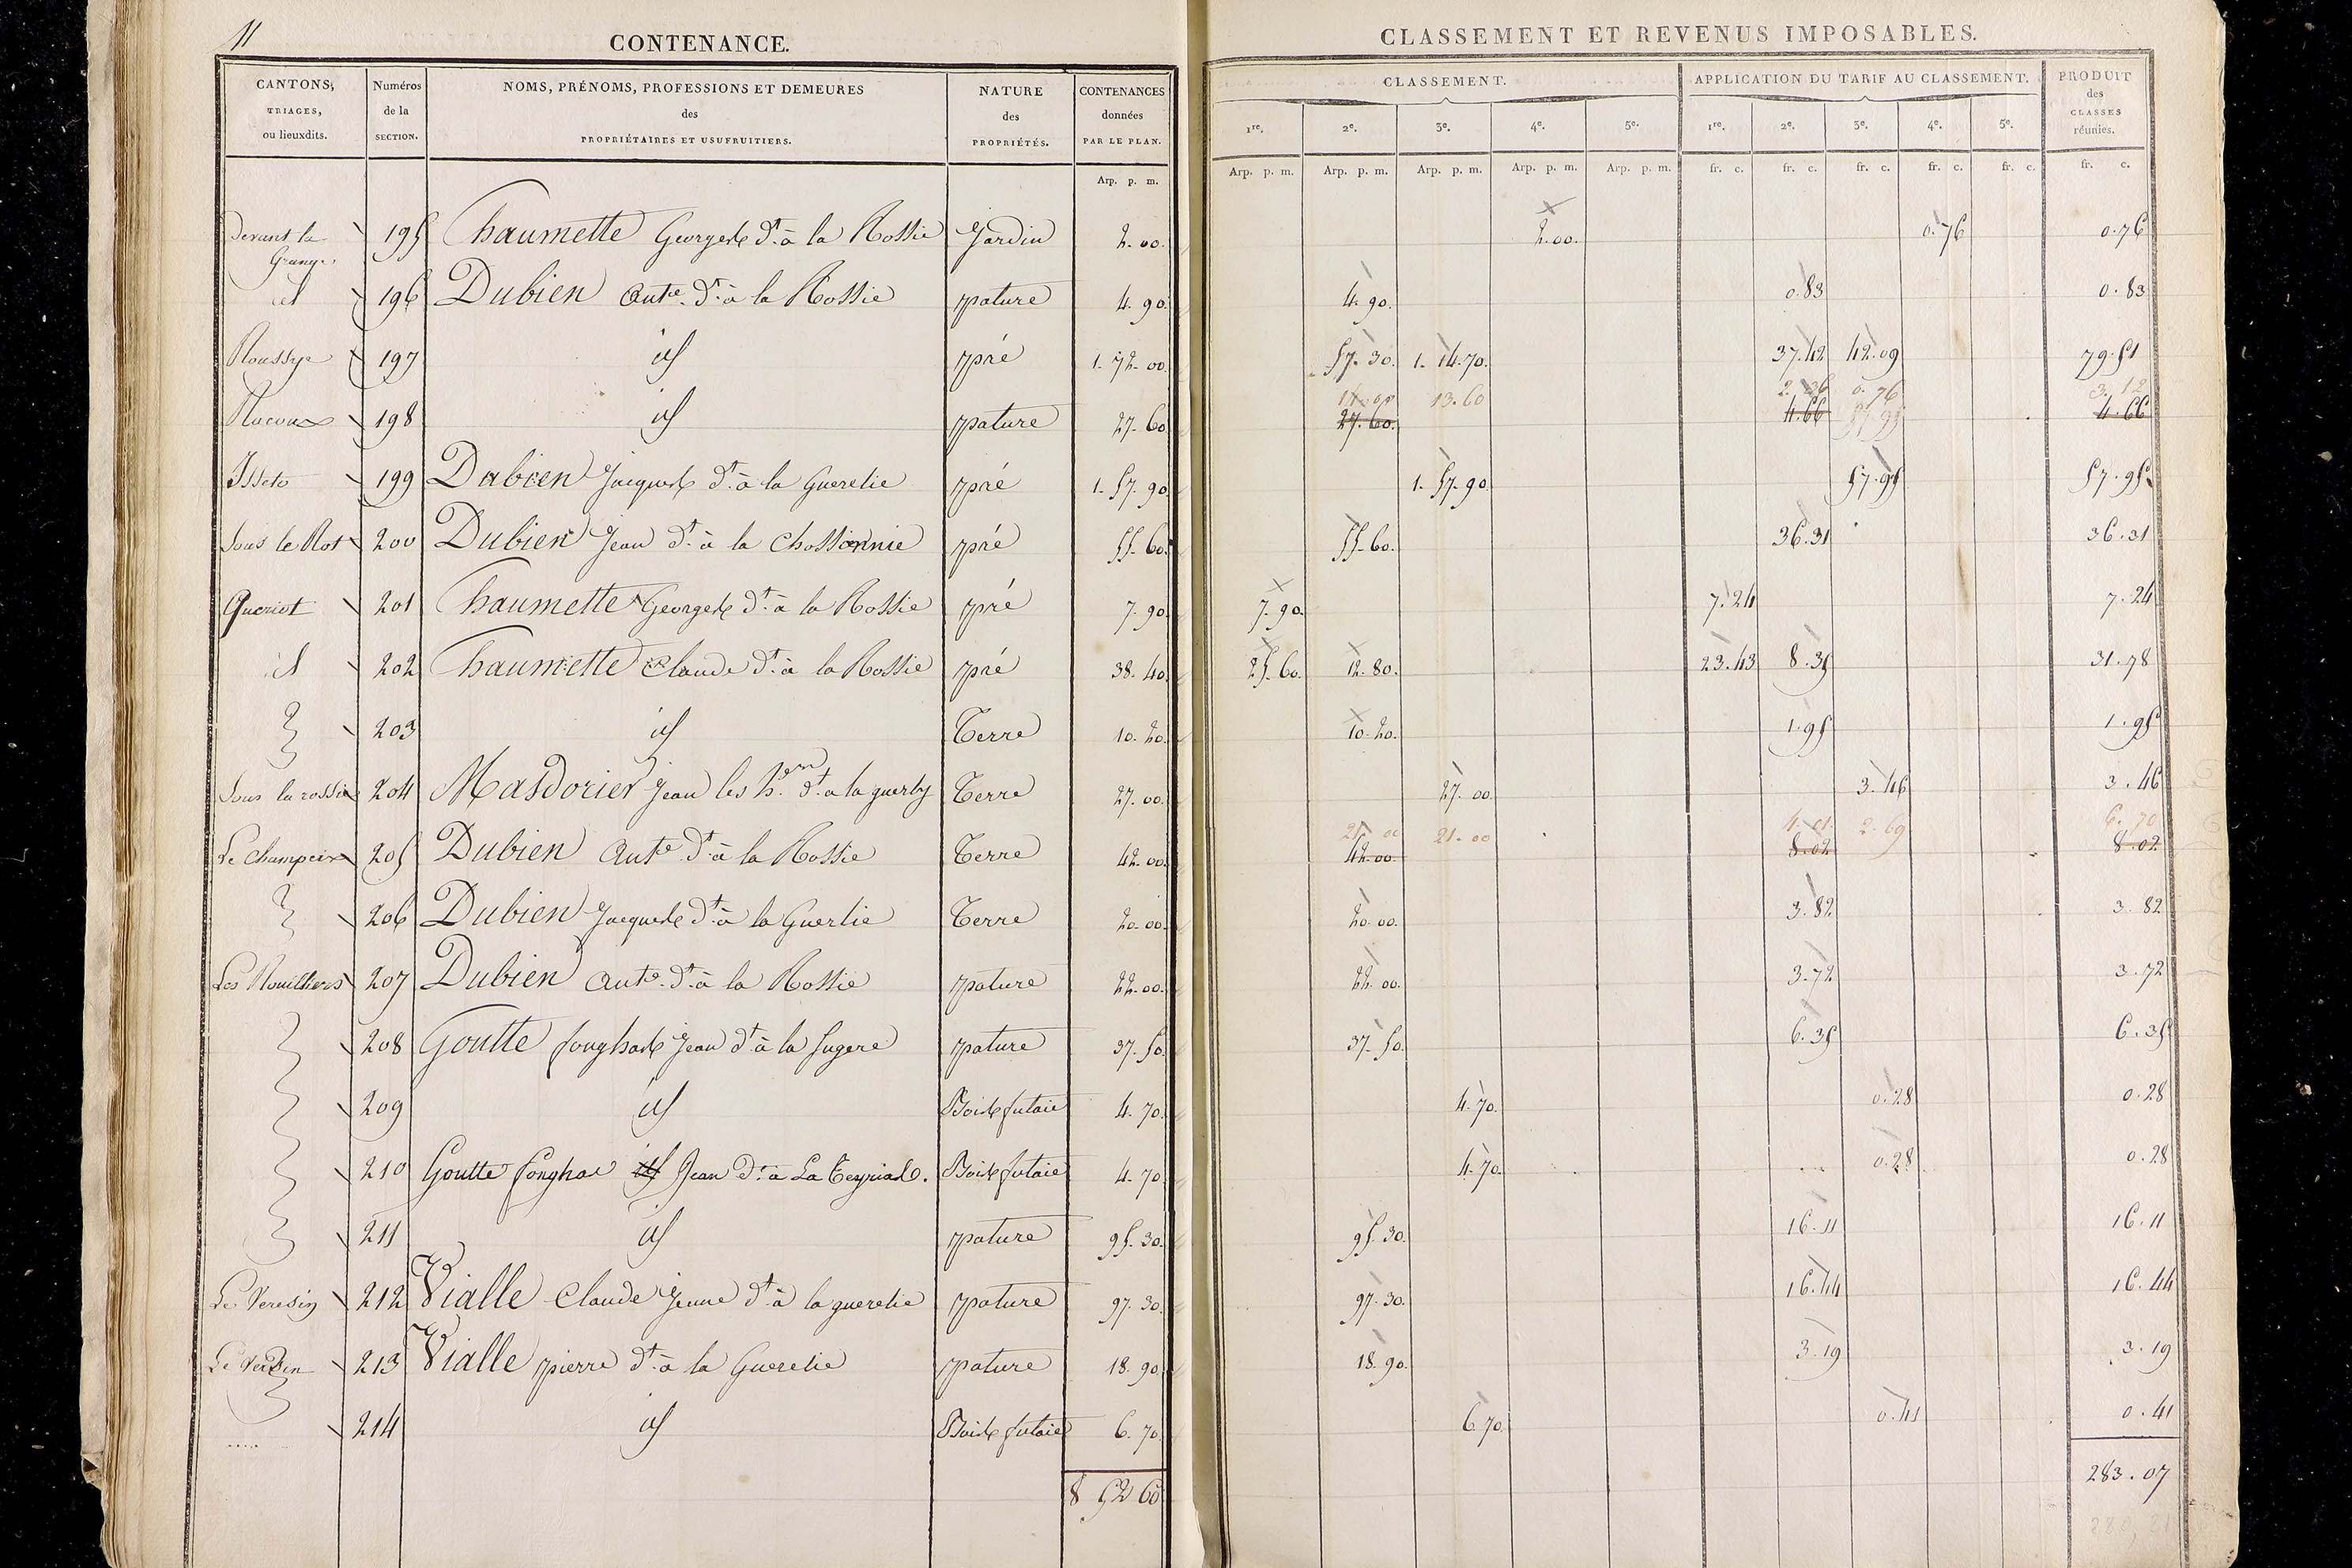 11
CONTENANCE.
CLASSEMENT ET REVENUS IMPOSABLES.
CANTONS, TRIAGES, ou lieuxdits. Numéros de la SECTION. NOMS, PRÉNOMS, PROFESSIONS ET DEMEURES des PROPRIÉTAIRES ET USUFRUITIERS. NATURE des PROPRIÉTÉS. CONTENANCES données PAR LE PLAN. CLASSEMENT. APPLICATION DU TARIF AU CLASSEMENT. PRODUIT des CLASSES réunies.
1re. 2e. 3e. 4e. 5e. 1re. 2e. 3e. 4e. 5e.
Arp. p. m. Arp. p. m. Arp. p. m. Arp. p. m. Arp. p. m. Arp. p. m. fr. c. fr. c. fr. c. fr. c. fr. c. fr. c.
Devant la Grange 195 Chaumette Georges dt. à la Rossie Jardin 2.00. 2.00. 0.76 0.76
id 196 Dubien Ante. dt. à la Rossie pature 4.90. 4.90. 0.83 0.83
Roussye 197 id pré 1.72.00. 57.30. 1.14.70. 37.42 42.09 79.51
14.00 13.60 2.36 0.76 3.12
198 id pature 27.60 27.60. 4.66 4.66
199 Dubien Jacques dt. à la Gueretie pré 1.57.90 1.57.90. 57.95 57.95
Sous le Rot 200 Dubien Jean dt. à la Chossonnie pré 55.60. 55.60. 36.31 36.31
Queriot 201 Chaumette Georges dt. à la Rossie pré 7.90. 7.90. 7.24 7.24
id 202 Chaumette Claude dt. à la Rossie pré 38.40. 25.60. 12.80. 23.43 8.35 31.78
203 id Terre 10.20. 10.20. 1.95 1.95
Sous la rossie 204 Masdorier Jean les h. dt. a la guerty Terre 27.00. 27.00. 3.46 3.46
21.00 21.00 4.01 2.69 6.70
Le Champeix 205 Dubien Ante. dt. à la Rossie Terre 42.00. 42.00. 8.02 8.02
206 Dubien Jacques dt. à la Guerlie Terre 20.00. 20.00. 3.82 3.82
Les 207 Dubien Ante. dt. à la Rossie pature 22.00. 22.00. 3.72 3.72
208 Goutte fonghas Jean dt. à la fugere pature 37.50. 37.50. 6.35 6.35
209 id Bois futaie 4.70. 4.70. 0.28 0.28
210 Goutte fonghas id Jean dt. à La Teyrias. Bois futaie 4.70. 4.70. 0.28 0.28
211 id pature 95.30. 95.30. 16.11 16.11
Le Veresin 212 Vialle Claude jeune dt. à la gueretie pature 97.30. 97.30. 16.44 16.44
Le 213 Vialle pierre dt. à la Gueretie pature 18.90. 18.90. 3.19 3.19
214 id Bois futaie 6.70. 6.70. 0.41 0.41
8 52 60 283.07